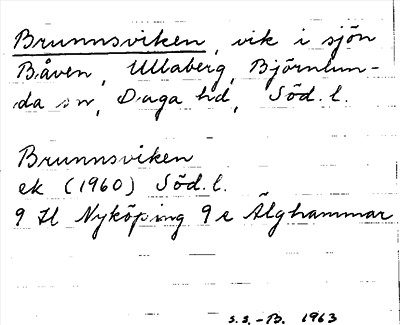 Brunnsviken, vik i sjön
Båven, Ullaberg, Björnlun-
da sn, Daga hd, Söd. l.
Brunnsviken
ek (1960) Söd. l.
9 H Nyköping 9 e Älghammar
S.S.-B. 1963